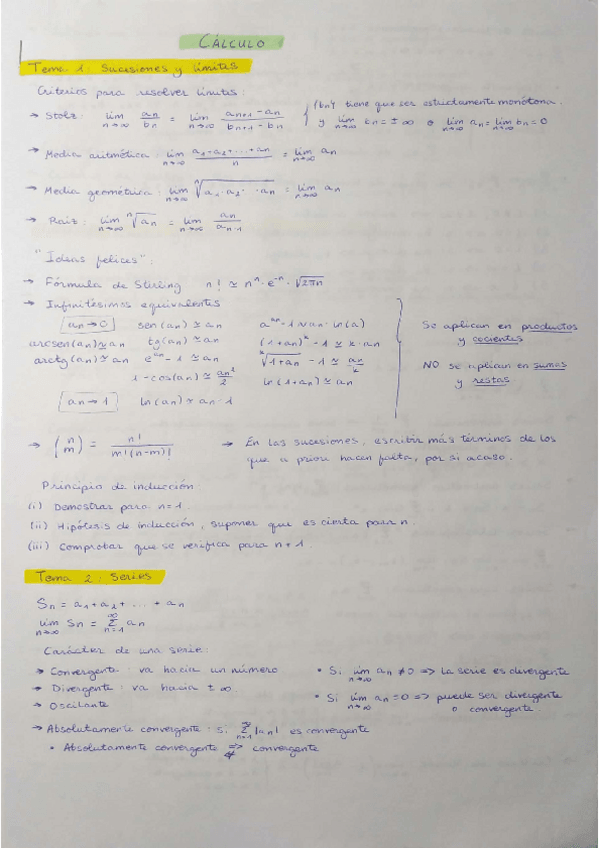 CÁLCULO
Tema 1: Sucesiones y límites
Criterios para resolver límites:
→ Stolz: lim n→∞ an/bn = lim n→∞ (an+1 - an)/(bn+1 - bn) { {bn} tiene que ser estrictamente monótona.
y lim n→∞ bn = ±∞ o lim n→∞ an = lim bn = 0
→ Media aritmética: lim n→∞ (a1+a2+...+an)/n = lim n→∞ an
→ Media geométrica: lim n→∞ ⁿ√(a1·a2· ·an) = lim n→∞ an
→ Raíz: lim n→∞ ⁿ√an = lim n→∞ an/an-1
"Ideas felices":
→ Fórmula de Stirling n! ≃ nⁿ · e⁻ⁿ · √2πn
→ Infinitésimos equivalentes
an→0 sen(an) ≃ an a^an - 1 ≃ an · ln(a)
arcsen(an) ≃ an tg(an) ≃ an (1+an)^k - 1 ≃ k·an
arctg(an) ≃ an e^an - 1 ≃ an ᵏ√(1+an) - 1 ≃ an/k
1 - cos(an) ≃ an²/2 ln(1+an) ≃ an
an→1 ln(an) ≃ an - 1
Se aplican en productos
y cocientes
NO se aplican en sumas
y restas
→ (n m) = n!/(m!(n-m)!) → En las sucesiones, escribir más términos de los
que a priori hacen falta, por si acaso.
Principio de inducción:
(i) Demostrar para n=1.
(ii) Hipótesis de inducción, suponer que es cierta para n.
(iii) Comprobar que se verifica para n+1.
Tema 2: Series
Sn = a1 + a2 + ... + an
lim n→∞ Sn = ∞ Σ n=1 an
Carácter de una serie:
→ Convergente: va hacia un número
→ Divergente: va hacia ±∞
→ Oscilante
• Si lim n→∞ an ≠ 0 => la serie es divergente
• Si lim n→∞ an = 0 => puede ser divergente
o convergente.
→ Absolutamente convergente: si ∞ Σ n=1 |an| es convergente
• Absolutamente convergente => ⇍ convergente